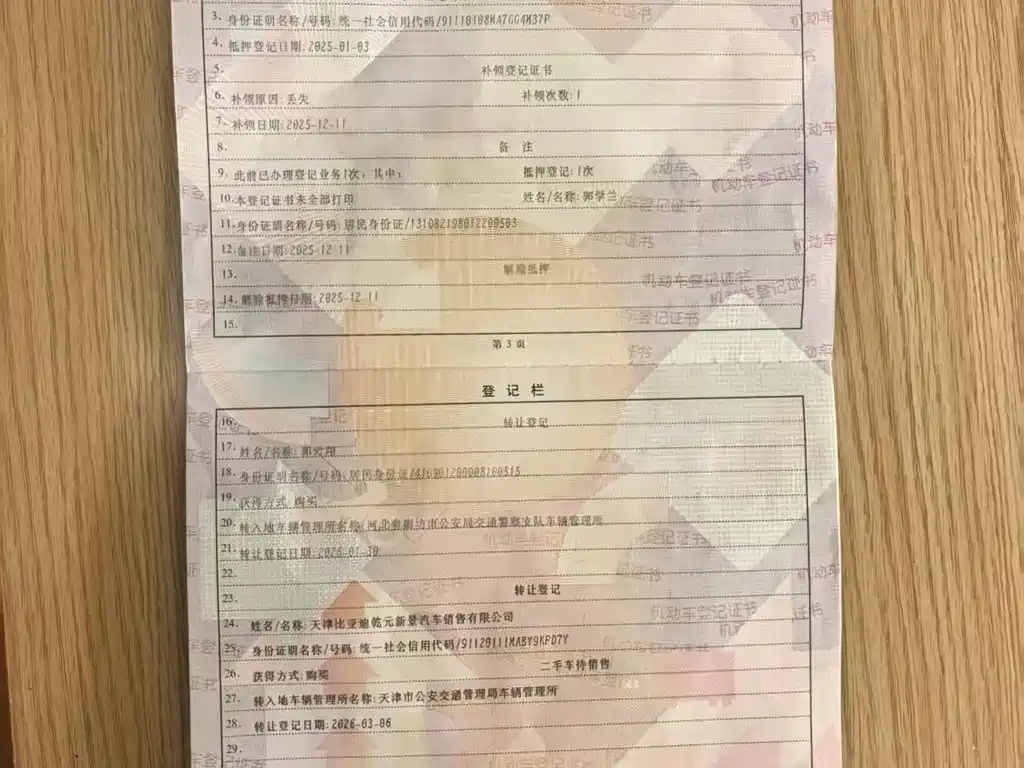 3. 身份证明名称/号码:统一社会信用代码/91110108MA7GG4M37P
4. 抵押登记日期:2025-01-03
5. 补领登记证书
6. 补领原因:丢失 补领次数:1
7. 补领日期:2025-12-11
8. 备 注
9. 此前已办理登记业务1次,其中: 抵押登记:1次
10. 本登记证书未全部打印 姓名/名称:郭学兰
11. 身份证明名称/号码:居民身份证/131082198012200503
12. 备注日期:2025-12-11
13. 解除抵押
14. 解除抵押日期:2025-12-11
15.
第 3 页
登 记 栏
16. 转让登记
17. 姓名/名称:
18. 身份证明名称/号码:居民身份证/
19. 获得方式:购买
20. 转入地车辆管理所名称:河北省廊坊市公安局交通警察支队车辆管理所
21. 转让登记日期:2026-01-30
22.
23. 转让登记
24. 姓名/名称:天津比亚迪乾元新景汽车销售有限公司
25. 身份证明名称/号码:统一社会信用代码/91120111MABY9KPD7Y
26. 获得方式:购买 二手车待销售
27. 转入地车辆管理所名称:天津市公安交通管理局车辆管理所
28. 转让登记日期:2026-03-06
29.